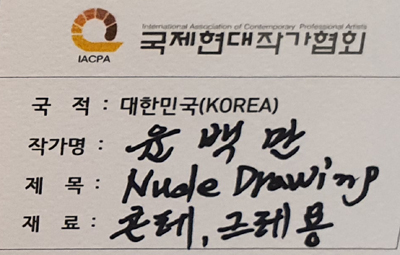 International Association of Contemporary Professional Artists
국제현대작가협회
IACPA
국 적 : 대한민국(KOREA)
작가명 : 윤백만
제 목 : Nude Drawing
재 료 : 콘테, 크레용